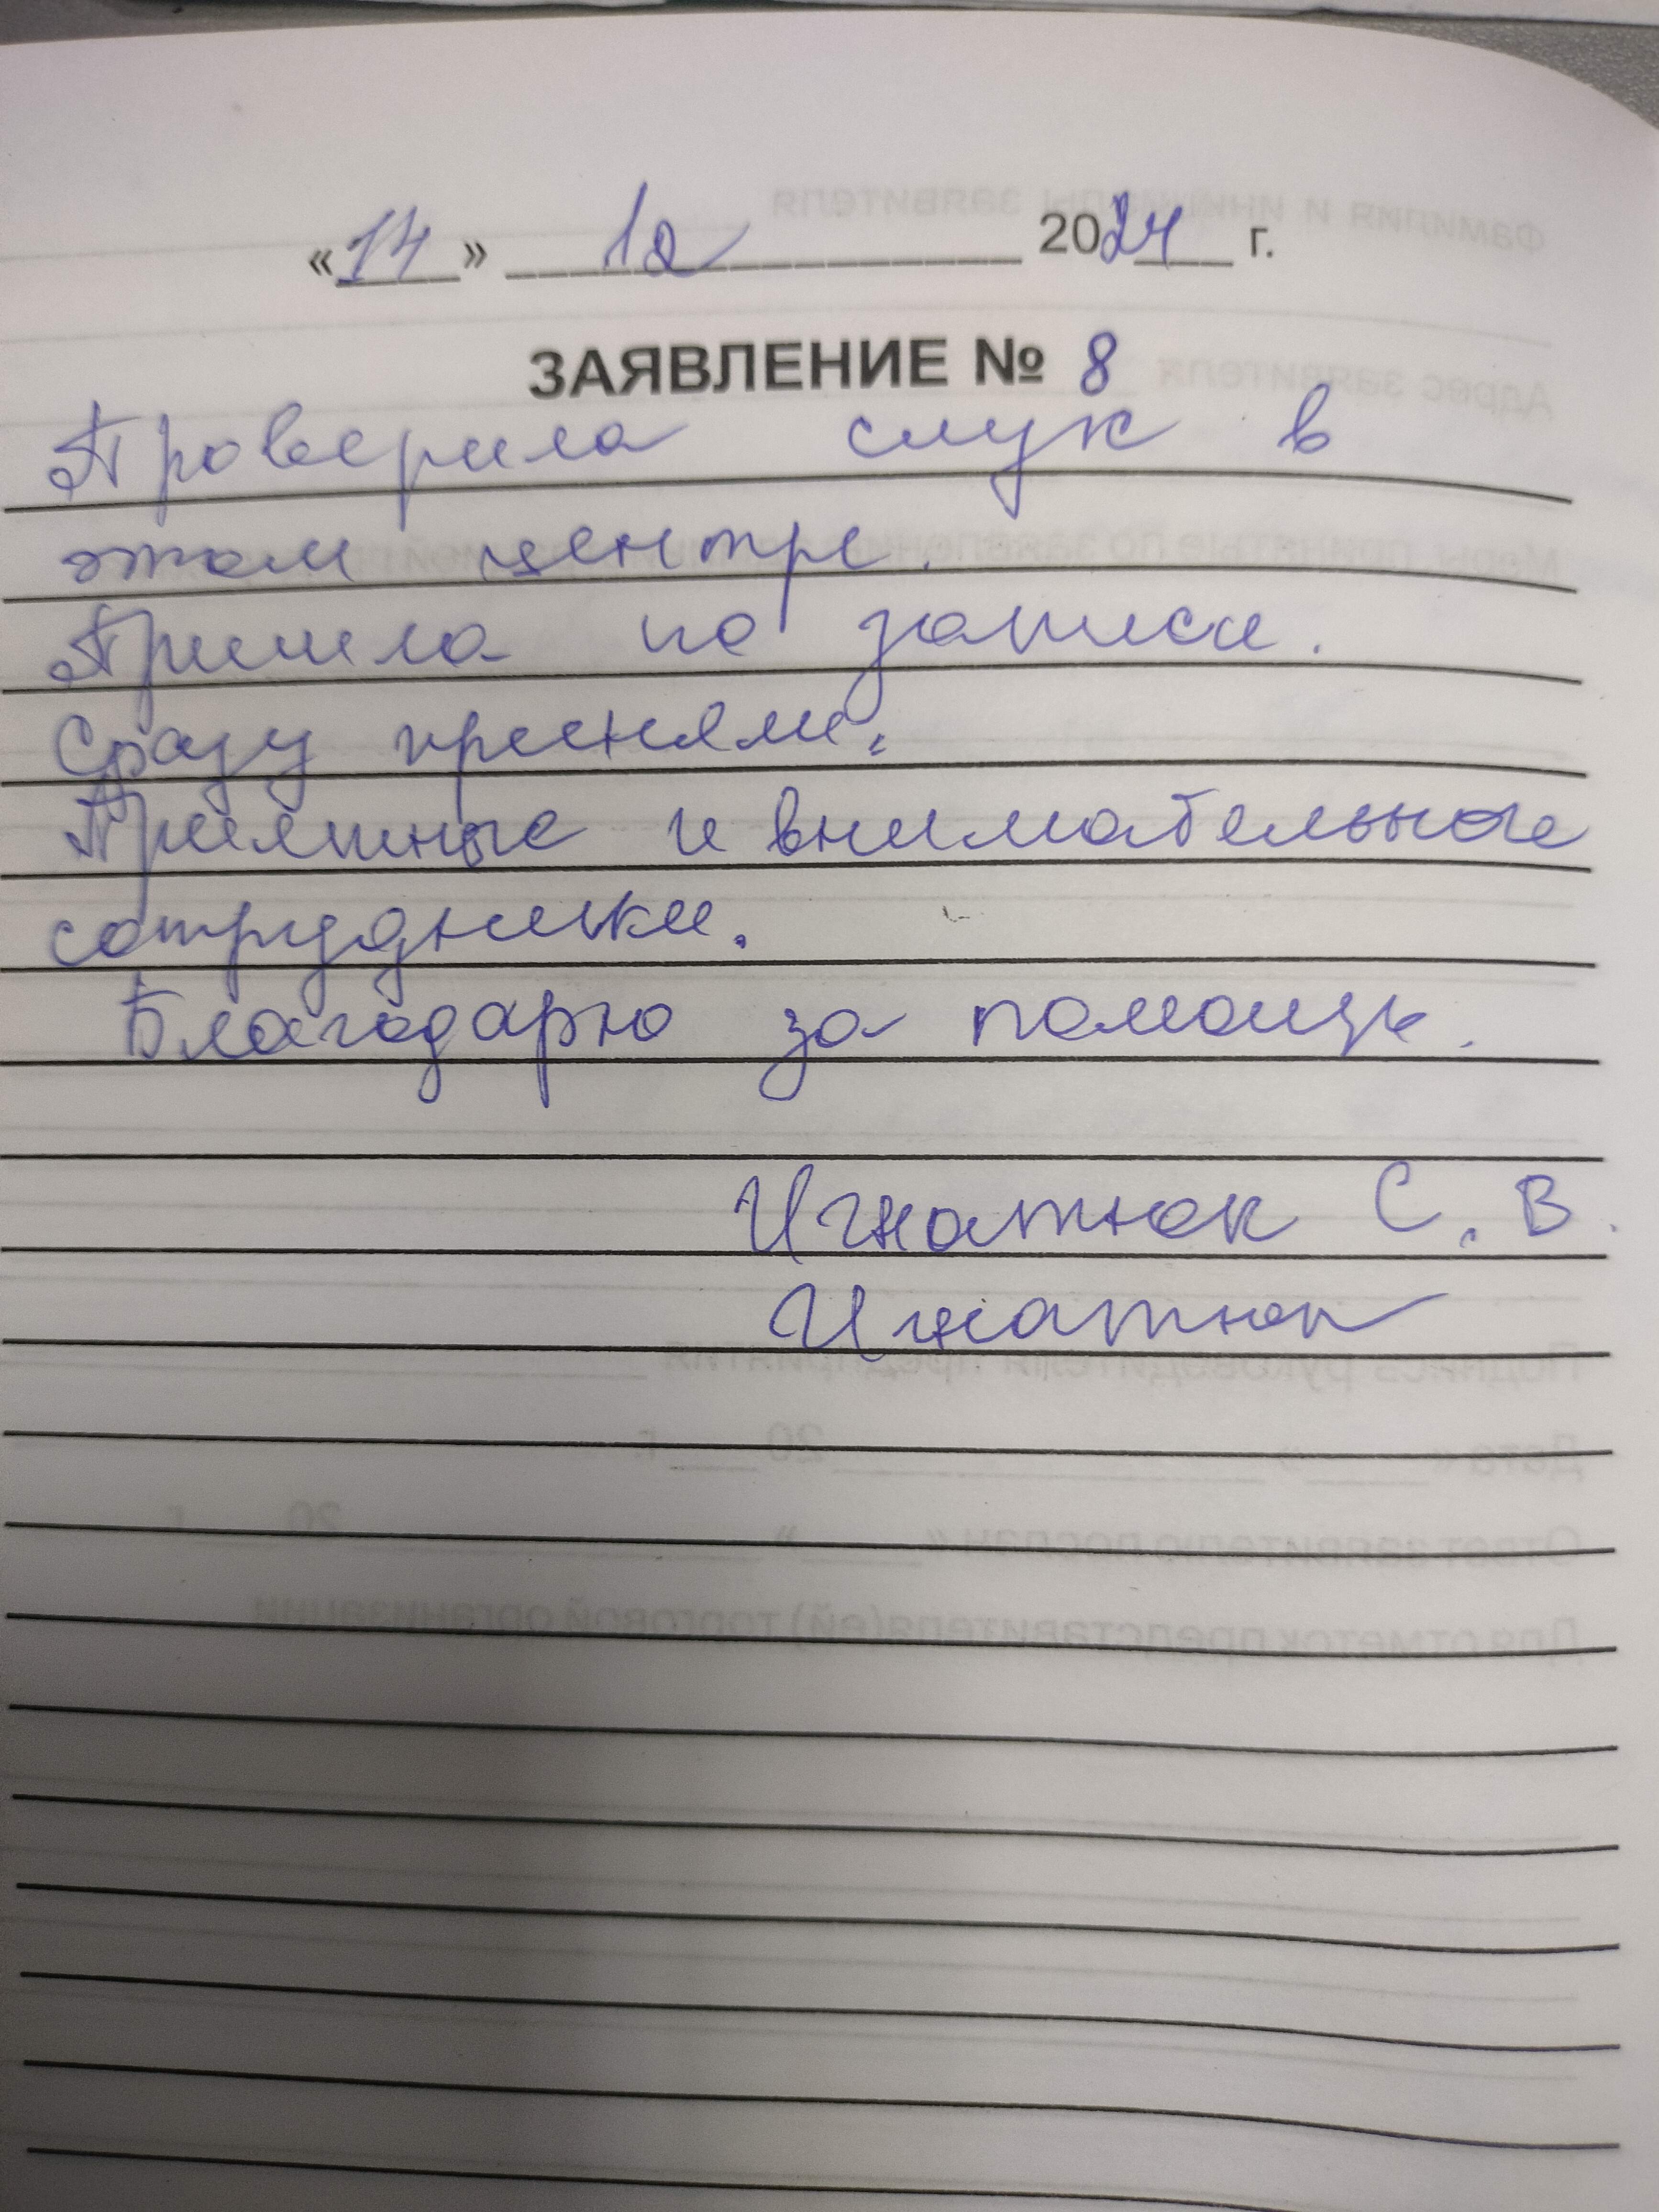 «14» 12 2024 г.
ЗАЯВЛЕНИЕ № 8
Проверила слух в
этом центре.
Пришла по записи.
Сразу приняли.
Приятные и внимательные
сотрудники.
Благодарю за помощь.
Игнатюк С. В.
Игнатюк